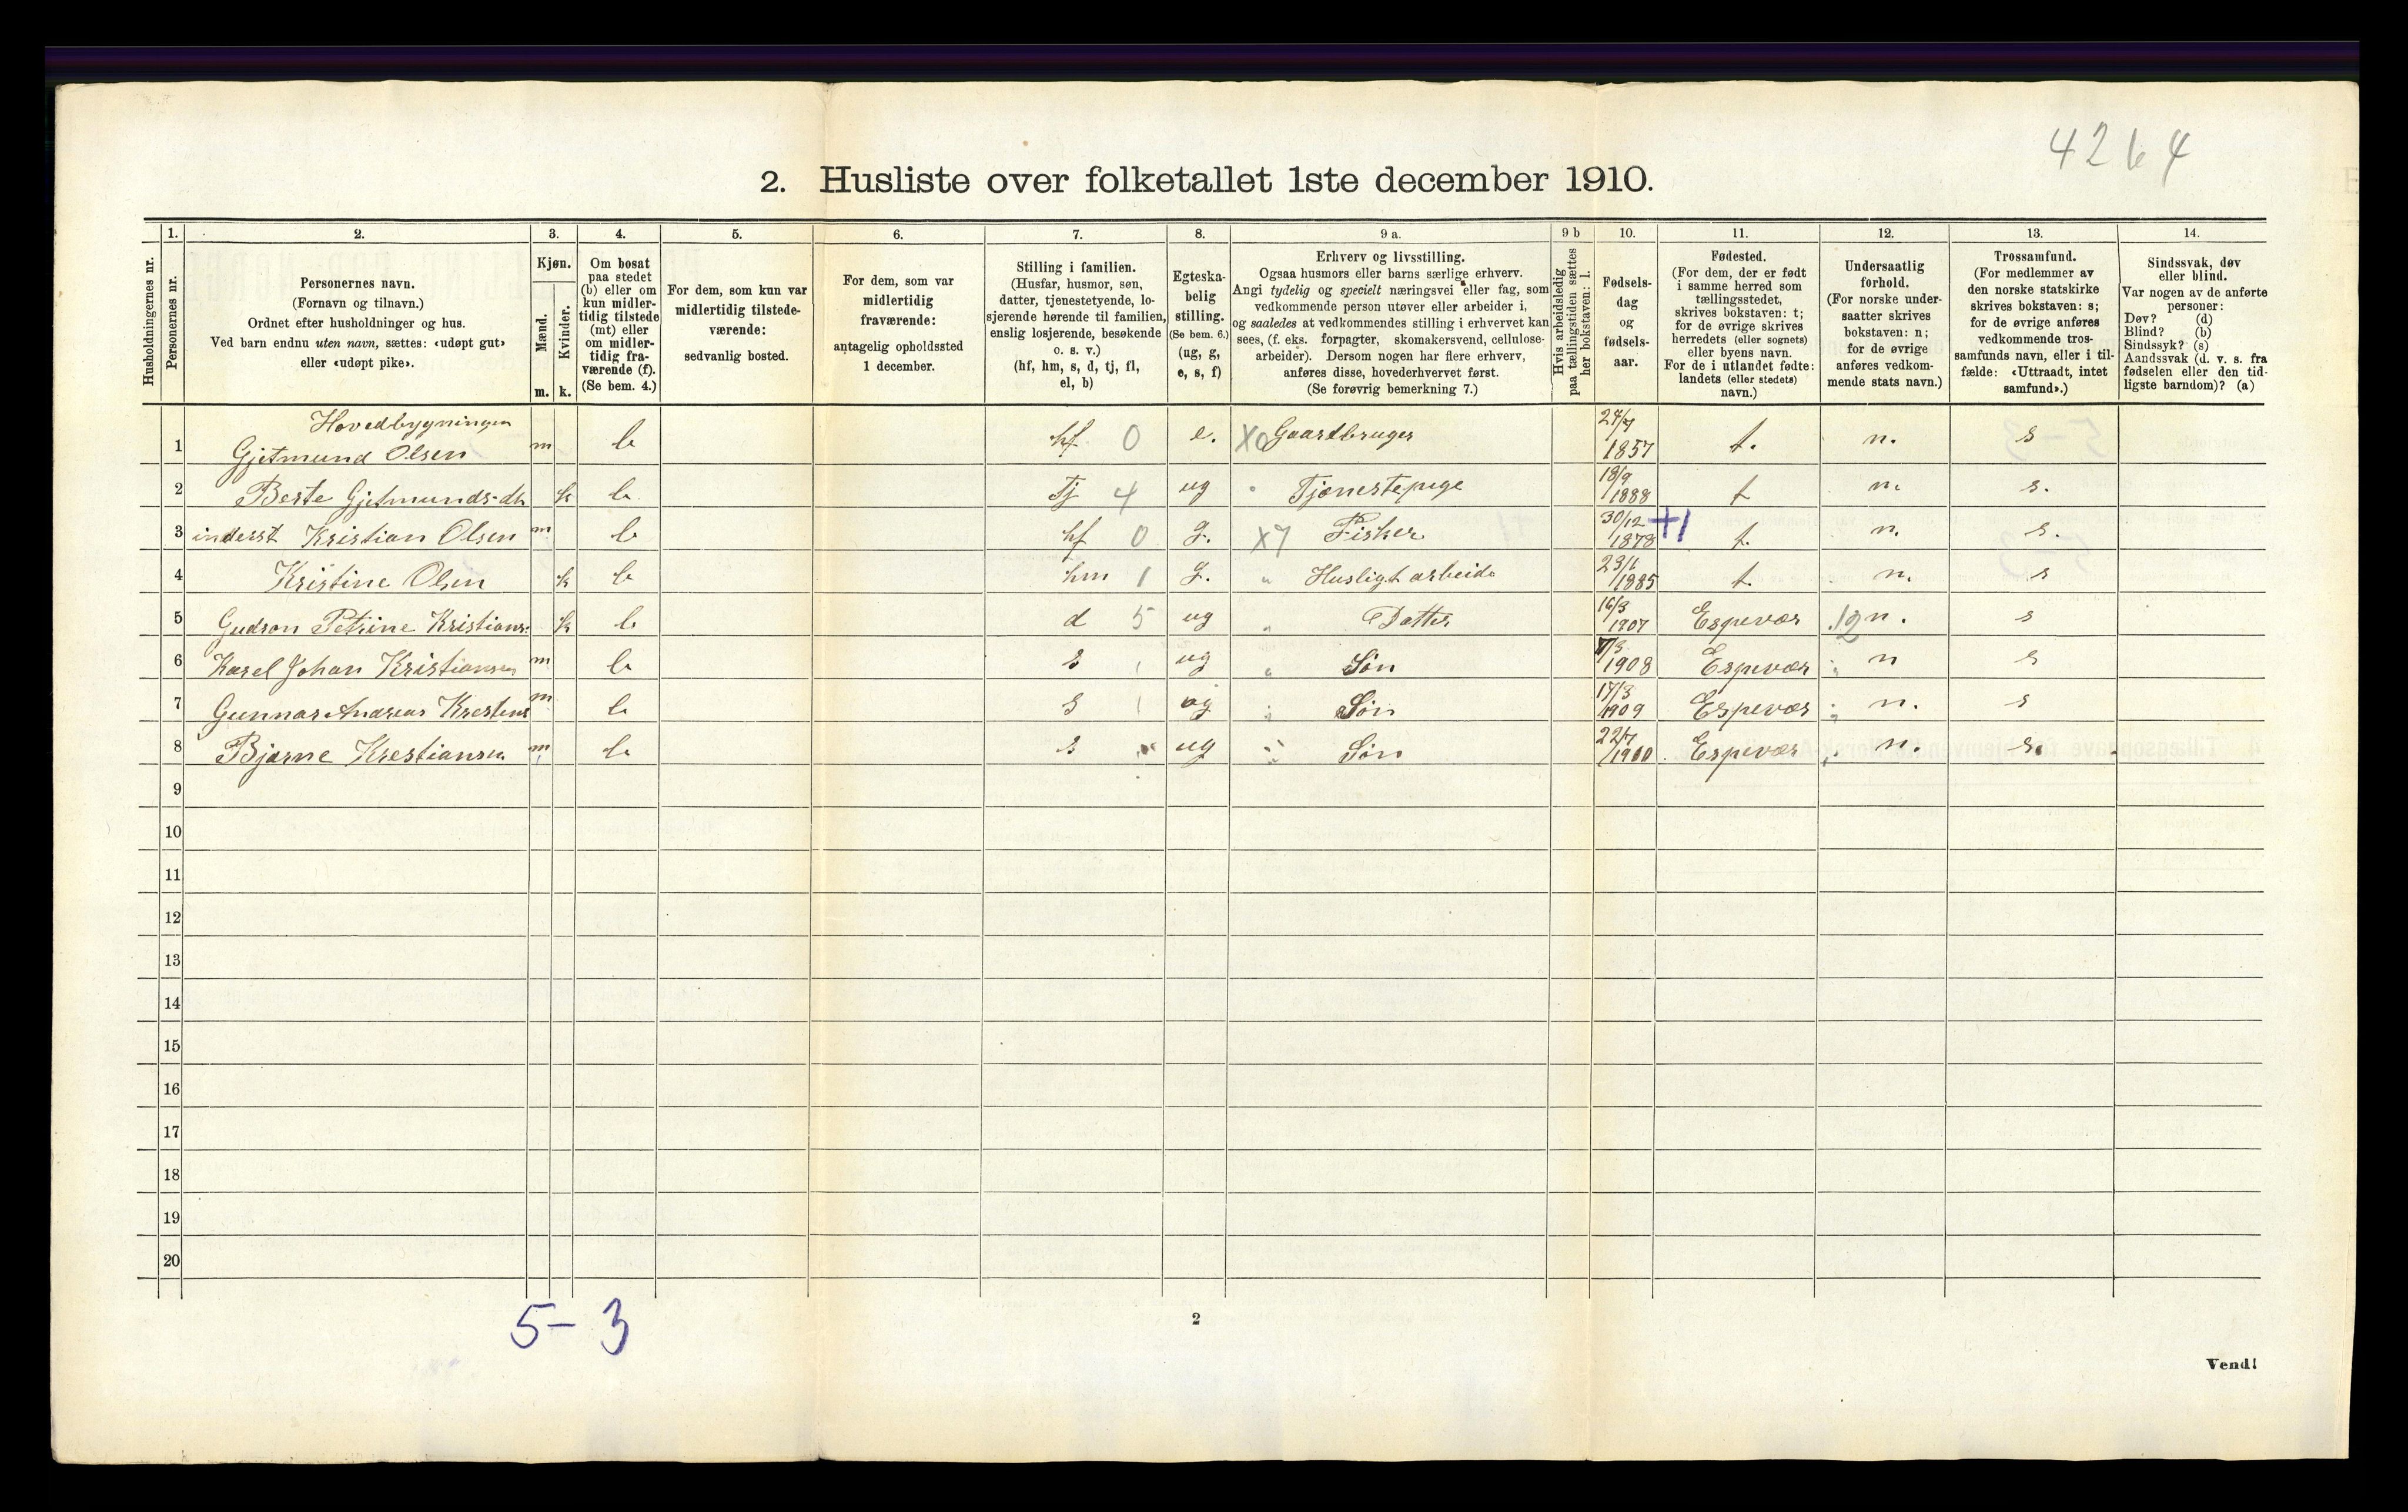 4264
2. Husliste over folketallet 1ste december 1910.
Husholdningernes nr.
1.
Personernes nr.
2.
Personernes navn.
(Fornavn og tilnavn.)
Ordnet efter husholdninger og hus.
Ved barn endnu uten navn, sættes: «udøpt gut»
eller «udøpt pike».
3.
Kjøn.
Mænd.
Kvinder.
m. k.
4.
Om bosat
paa stedet
(b) eller om
kun midler-
tidig tilstede
(mt) eller
om midler-
tidig fra-
værende (f).
(Se bem. 4.)
5.
For dem, som kun var
midlertidig tilstede-
værende:
sedvanlig bosted.
6.
For dem, som var
midlertidig
fraværende:
antagelig opholdssted
1 december.
7.
Stilling i familien.
(Husfar, husmor, søn,
datter, tjenestetyende, lo-
sjerende hørende til familien,
enslig losjerende, besøkende
o. s. v.)
(hf, hm, s, d, tj, fl,
el, b)
8.
Egteska-
belig
stilling.
(Se bem. 6.)
(ug, g,
e, s, f)
9 a.
Erhverv og livsstilling.
Ogsaa husmors eller barns særlige erhverv.
Angi tydelig og specielt næringsvei eller fag, som
vedkommende person utøver eller arbeider i,
og saaledes at vedkommendes stilling i erhvervet kan
sees, (f. eks. forpagter, skomakersvend, cellulose-
arbeider). Dersom nogen har flere erhverv,
anføres disse, hovederhvervet først.
(Se forøvrig bemerkning 7.)
9 b
Hvis arbeidsledig
paa tællingstiden sættes
her bokstaven: l.
10.
Fødsels-
dag
og
fødsels-
aar.
11.
Fødested.
(For dem, der er født
i samme herred som
tællingsstedet,
skrives bokstaven: t;
for de øvrige skrives
herredets (eller sognets)
eller byens navn.
For de i utlandet fødte:
landets (eller stedets)
navn.)
12.
Undersaatlig
forhold.
(For norske under-
saatter skrives
bokstaven: n;
for de øvrige
anføres vedkom-
mende stats navn.)
13.
Trossamfund.
(For medlemmer av
den norske statskirke
skrives bokstaven: s;
for de øvrige anføres
vedkommende tros-
samfunds navn, eller i til-
fælde: «Uttraadt, intet
samfund».)
14.
Sindssvak, døv
eller blind.
Var nogen av de anførte
personer:
Døv? (d)
Blind? (b)
Sindssyk? (s)
Aandssvak (d. v. s. fra
fødselen eller den tid-
ligste barndom)? (a)
Hovedbygningen
1 Gjetmund Olsen m b hf 0 e. X0 Gaardbruger 1857 t. n. s
2 Berte Gjetmunds-dtr k b Tj 4 ug " Tjenestepige 18/9 1888 t n. s.
3 inderst Kristian Olsen m b hf 0 g. X7 Fisker 30/12 1878 +1 t. n. s.
4 Kristine Olsen k b hm 1 g. " Husligt arbeide 23/1 1885 t. n. s
5 Gudron Petrine Kristians. k b d 5 ug " Datter 16/3 1907 Espevær 12 n. s
6 Karel Johan Kristiansen m b s ug " Søn 1908 Espevær " n s
7 Gunnar Andreas m b s ug " Søn 17/3 1909 Espevær " n. s
8 Bjarne Krestiansen m b s ug " Søn 22/7 1910 Espevær " n. s.
9
10
11
12
13
14
15
16
17
18
19
20
5 - 3
2
Vend!